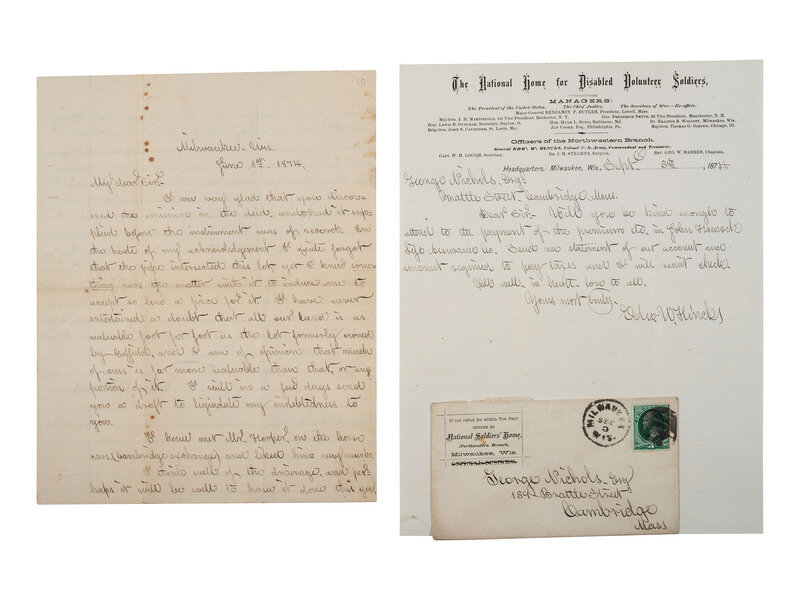 Milwaukee, Wis.
June 1st, 1874.
My dear Sir.
I am very glad that you discov-
ered the omission in the deed, and had it sup-
plied before the instrument was of record. In
the haste of my acknowledgement I quite forgot
that the pipe intersected this lot, yet I knew some-
thing was the matter with it to induce me to
accept so low a price for it. I have never
entertained a doubt that all our land is as
valuable foot for foot as the lot formerly owned
by and I am of opinion that much
of ours is far more valuable than that, or any
portion of it. I will in a few days send
you a draft to liquidate my indebtedness to
you.
I have met Mr. Hooper on the horse
cars (Cambridge exchange) and liked him very much.
I think well of the drainage and per-
haps it will be well to have it done this year
The National Home for Disabled Volunteer Soldiers.
MANAGERS:
The President of the United States. The Chief Justice. The Secretary of War.—Ex-officio.
Major-General BENJAMIN F. BUTLER, President, Lowell, Mass.
Maj-Gen. J. H. MARTINDALE, 1st Vice-President, Rochester, N. Y. Gov. FREDERICK SMYTH, 2d Vice-President, Manchester, N. H.
Hon. LEWIS B. GUNCKEL, Secretary, Dayton, O. Hon. HUGH L. BOND, Baltimore, Md. Dr. ERASTUS B. WOLCOTT, Milwaukee, Wis.
Brig-Gen. JOHN S. CAVENDER, St. Louis, Mo. JAY COOKE, Esq., Philadelphia, Pa. Maj-Gen. THOMAS O. OSBORN, Chicago, Ill.
Officers of the Northwestern Branch.
General EDW. W. HINCKS, Colonel U. S. Army, Commandant and Treasurer.
Capt. W. H. LOUGH, Secretary. Dr. I. H. STEARNS, Surgeon. Rev. GEO. W. BARBER, Chaplain.
Headquarters, Milwaukee, Wis., Sept. 187
George Nichols Esq.
Brattle Street, Cambridge, Mass.
Dear Sir. Will you be kind enough to
attend to the payment of the premium etc. in John Hancock
Life Assurance Co. Send me statement of our account and
amount required to pay taxes and I will remit check.
All well, in haste, love to all.
Yours most truly,
Edw. W. Hincks
If not called for within Ten Days
RETURN TO
National Soldiers' Home,
Northwestern Branch,
Milwaukee, Wis.
OFFICIAL BUSINESS.
MILWAUKEE
WIS.
George Nichols, Esq.
Brattle Street
Cambridge
Mass